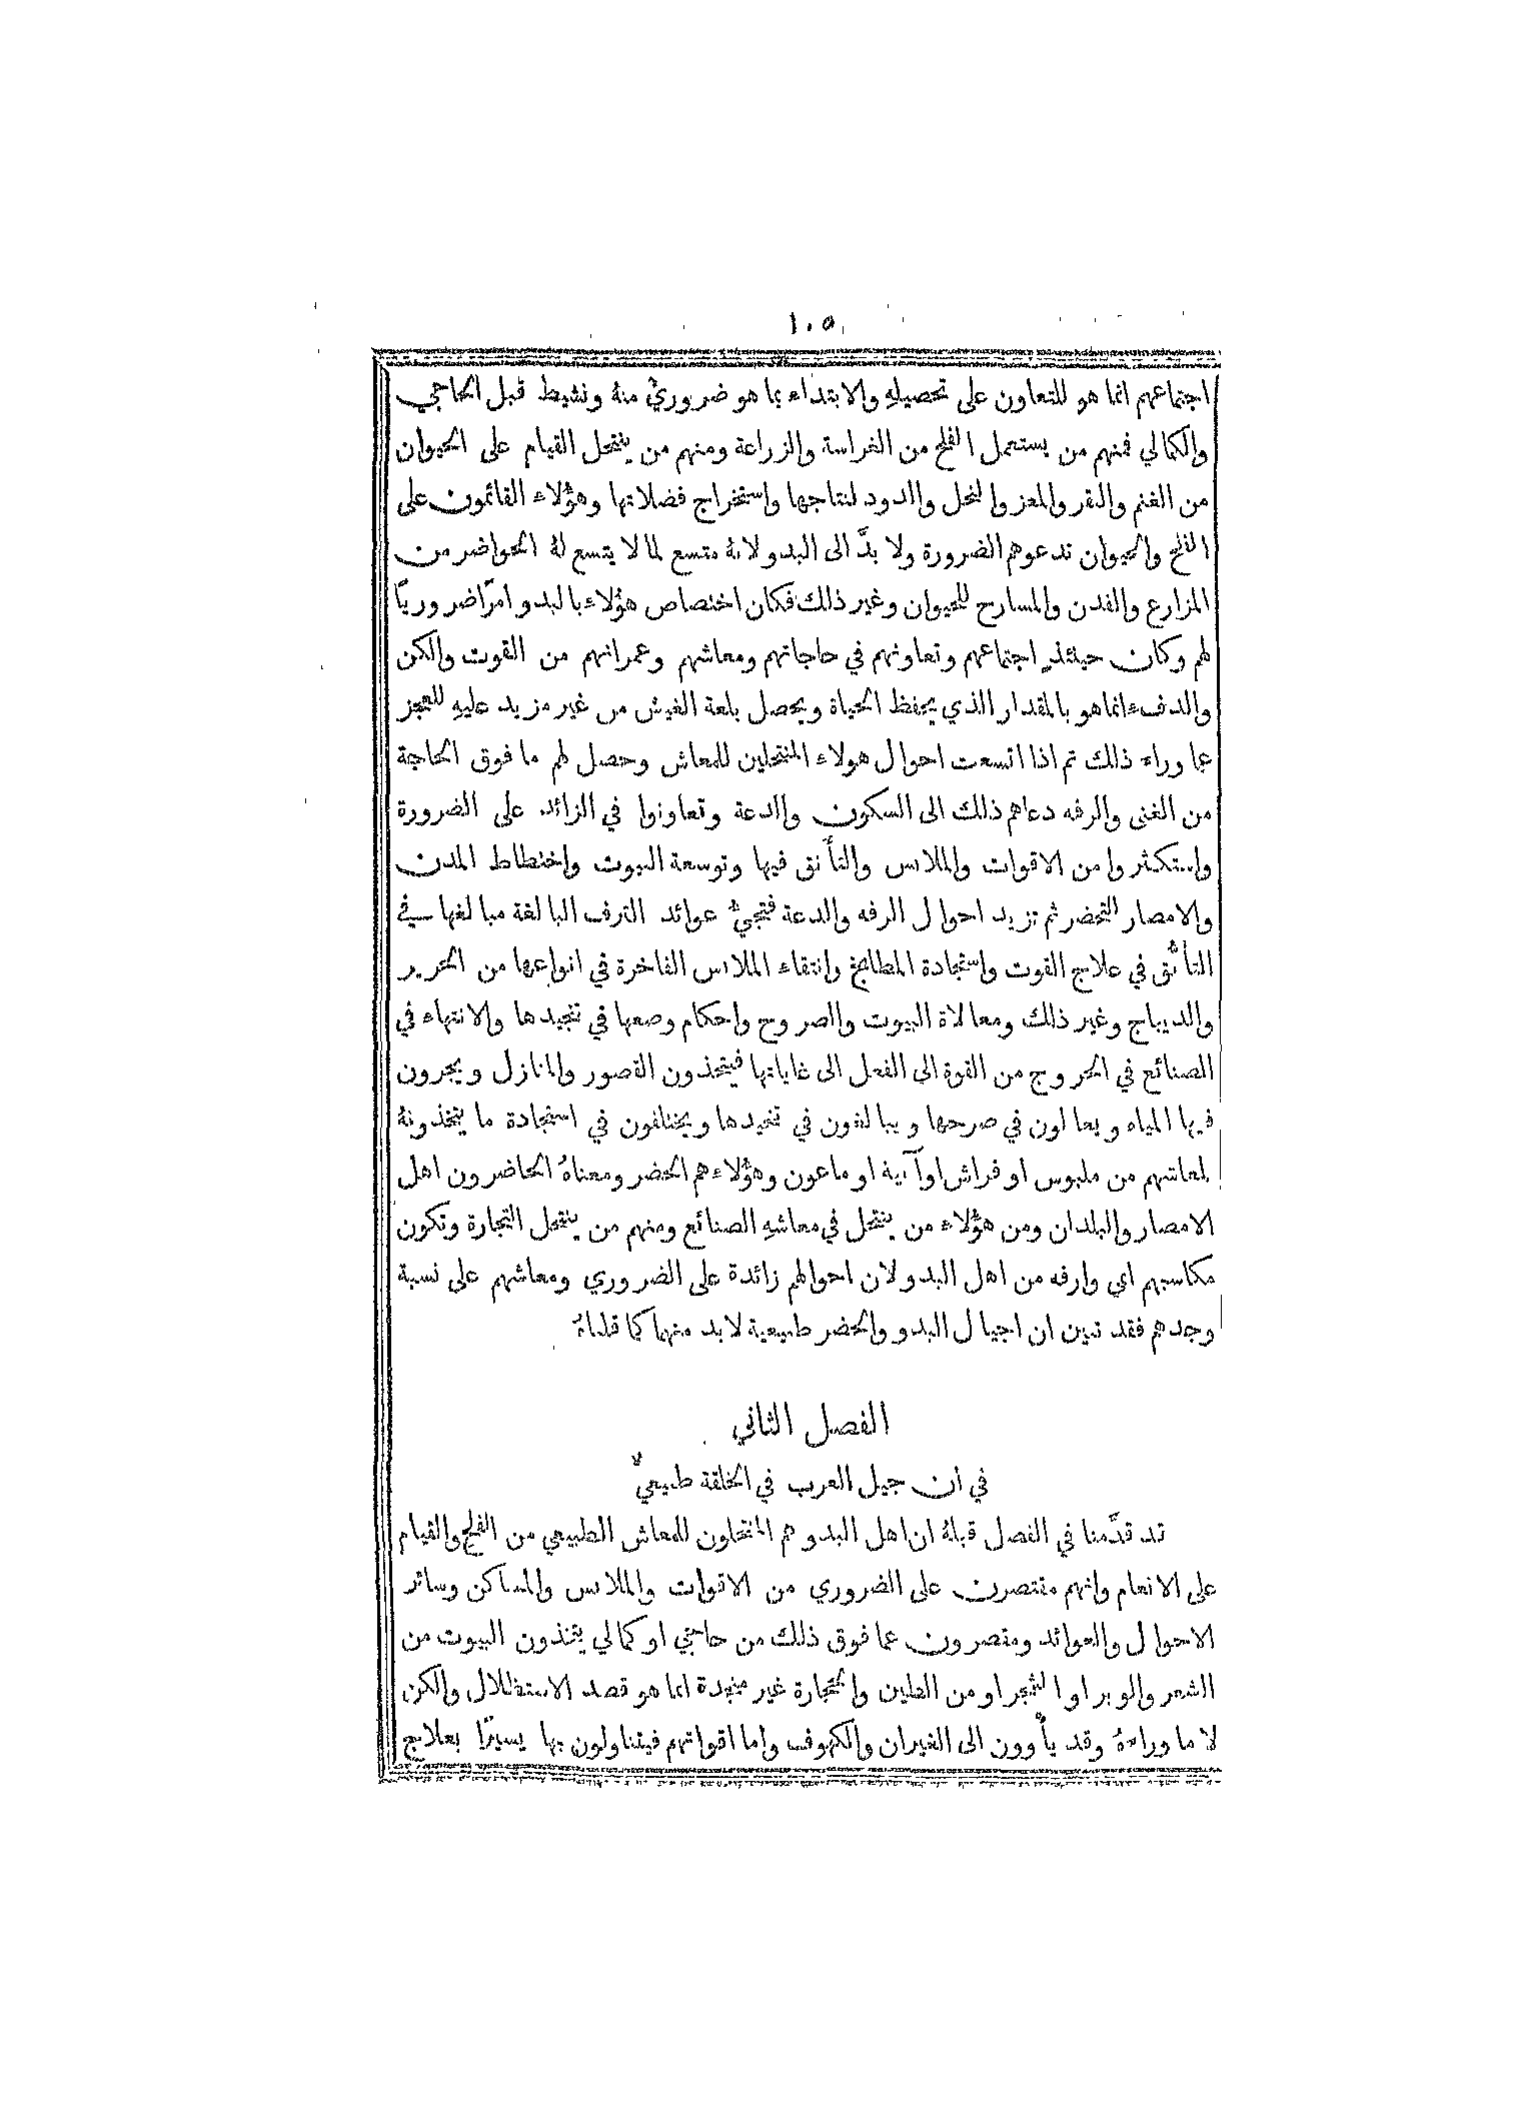 ١٠٥
اجتماعهم انما هو للتعاون على تحصيلهِ والابتداء بما هو ضروريٌ منهُ ونشيط قبل الحاجي
والكمالي فمنهم من يستعمل الفلح من الغراسة والزراعة ومنهم من ينتحل القيام على الحيوان
من الغنم والبقر والمعز والنحل والدود لنتاجها واستخراج فضلاتها وهؤلاء القائمون على
الفلح والحيوان تدعوهم الضرورة ولا بدَّ الى البدو لانهُ متسع لما لا يتسع لهُ الحواضر من
المزارع والفدن والمسارح للحيوان وغير ذلك فكان اختصاص هؤلاء بالبدو امرًا ضروريًا
لهم وكان حينئذٍ اجتماعهم وتعاونهم في حاجاتهم ومعاشهم وعمرانهم من القوت والكن
والدفء انما هو بالمقدار الذي يحفظ الحياة ويحصل بلغة العيش من غير مزيد عليهِ للعجز
عما وراء ذلك ثم اذا اتسعت احوال هولاء المنتحلين للمعاش وحصل لهم ما فوق الحاجة
من الغنى والرفه دعاهم ذلك الى السكون والدعة وتعاونوا في الزائد على الضرورة
واستكثروا من الاقوات والملابس والتأنق فيها وتوسعة البيوت واختطاط المدن
والامصار للتحضر ثم تزيد احوال الرفه والدعة فتجيءُ عوائد الترف البالغة مبالغها في
التأنُّق في علاج القوت واستجادة المطابخ وانتقاء الملابس الفاخرة في انواعها من الحرير
والديباج وغير ذلك ومعالاة البيوت والصروح واحكام وضعها في تنجيدها والانتهاء في
الصنائع في الخروج من القوة الى الفعل الى غاياتها فيتخذون القصور والمنازل ويجرون
فيها المياه ويعالون في صرحها ويبالغون في تنجيدها ويختلفون في استجادة ما يتخذونهُ
لمعاشهم من ملبوس او فراش او آنية او ماعون وهؤلاء هم الحضر ومعناهُ الحاضرون اهل
الامصار والبلدان ومن هؤلاء من ينتحل في معاشهِ الصنائع ومنهم من ينتحل التجارة وتكون
مكاسبهم انمي وارفه من اهل البدو لان احوالهم زائدة على الضروري ومعاشهم على نسبة
وجدهم فقد تبين ان اجيال البدو والحضر طبيعية لا بد منهما كما قلناهُ
الفصل الثاني
في ان جيل العرب في الخلقة طبيعيٌّ
قد قدَّمنا في الفصل قبلهُ ان اهل البدو هم المنتحلون للمعاش الطبيعي من الفلح والقيام
على الانعام وانهم مقتصرون على الضروري من الاقوات والملابس والمساكن وسائر
الاحوال والعوائد ومقصرون عما فوق ذلك من حاجيّ او كمالي يتخذون البيوت من
الشعر والوبر او الشجر او من الطين والحجارة غير منجدة انما هو قصد الاستظلال والكن
لا ما وراءهُ وقد يأْوون الى الغيران والكهوف واما اقواتهم فيتناولون بها يسيرًا بعلاج